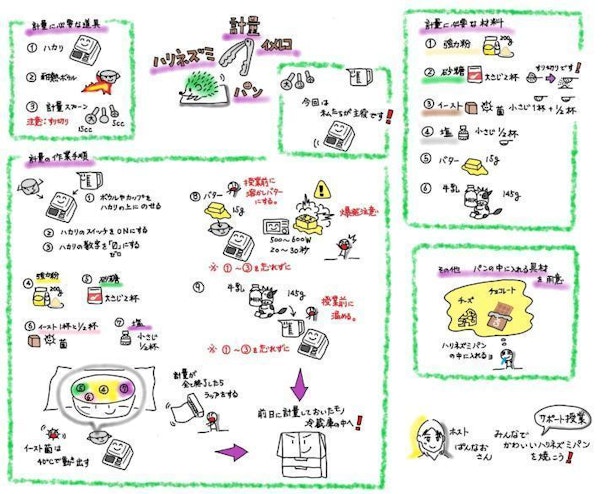 計量に必要な道具
① ハカリ
② 耐熱ボウル
③ 計量スプーン
注意:すり切り
15cc
5cc
計量
ハリネズミ
イメトレ
パン
今回は
私たちが主役です!
計量に必要な材料
① 強力粉
200g
② 砂糖
大さじ2杯
すり切りです!
③ イースト
菌
小さじ1杯+1/2杯
④ 塩
小さじ1/2杯
⑤ バター 15g
⑥ 牛乳
145g
計量の作業手順
① ボウルやカップを
ハカリの上にのせる
② ハカリのスイッチをONにする
③ ハカリの数字を「0」にする
ゼロ
④ 強力粉
200g
⑤ 砂糖
大さじ2杯
⑥ イースト1杯と1/2杯
菌
⑦ 塩
小さじ
1/2杯
⑤ ④ ⑦
⑥
イースト菌は
40℃で動き出す
計量が
全て終了したら
ラップをする
⑧ バター
15g
授業前に
溶かしバター
にする。
爆発注意
500〜600W
20〜30秒
※ ①〜③を忘れずに
⑨ 牛乳
MILK
145g
授業前に
温める。
※ ①〜③を忘れずに
前日に計量しておいたモノ
冷蔵庫の中へ!
その他 パンの中に入れる具材
を用意
チョコレート
チーズ
ハリネズミパン
の中に入れるョ
サポート授業
ホスト
ぱんなお
さん
みんなで
かわいいハリネズミパン
を焼こう!